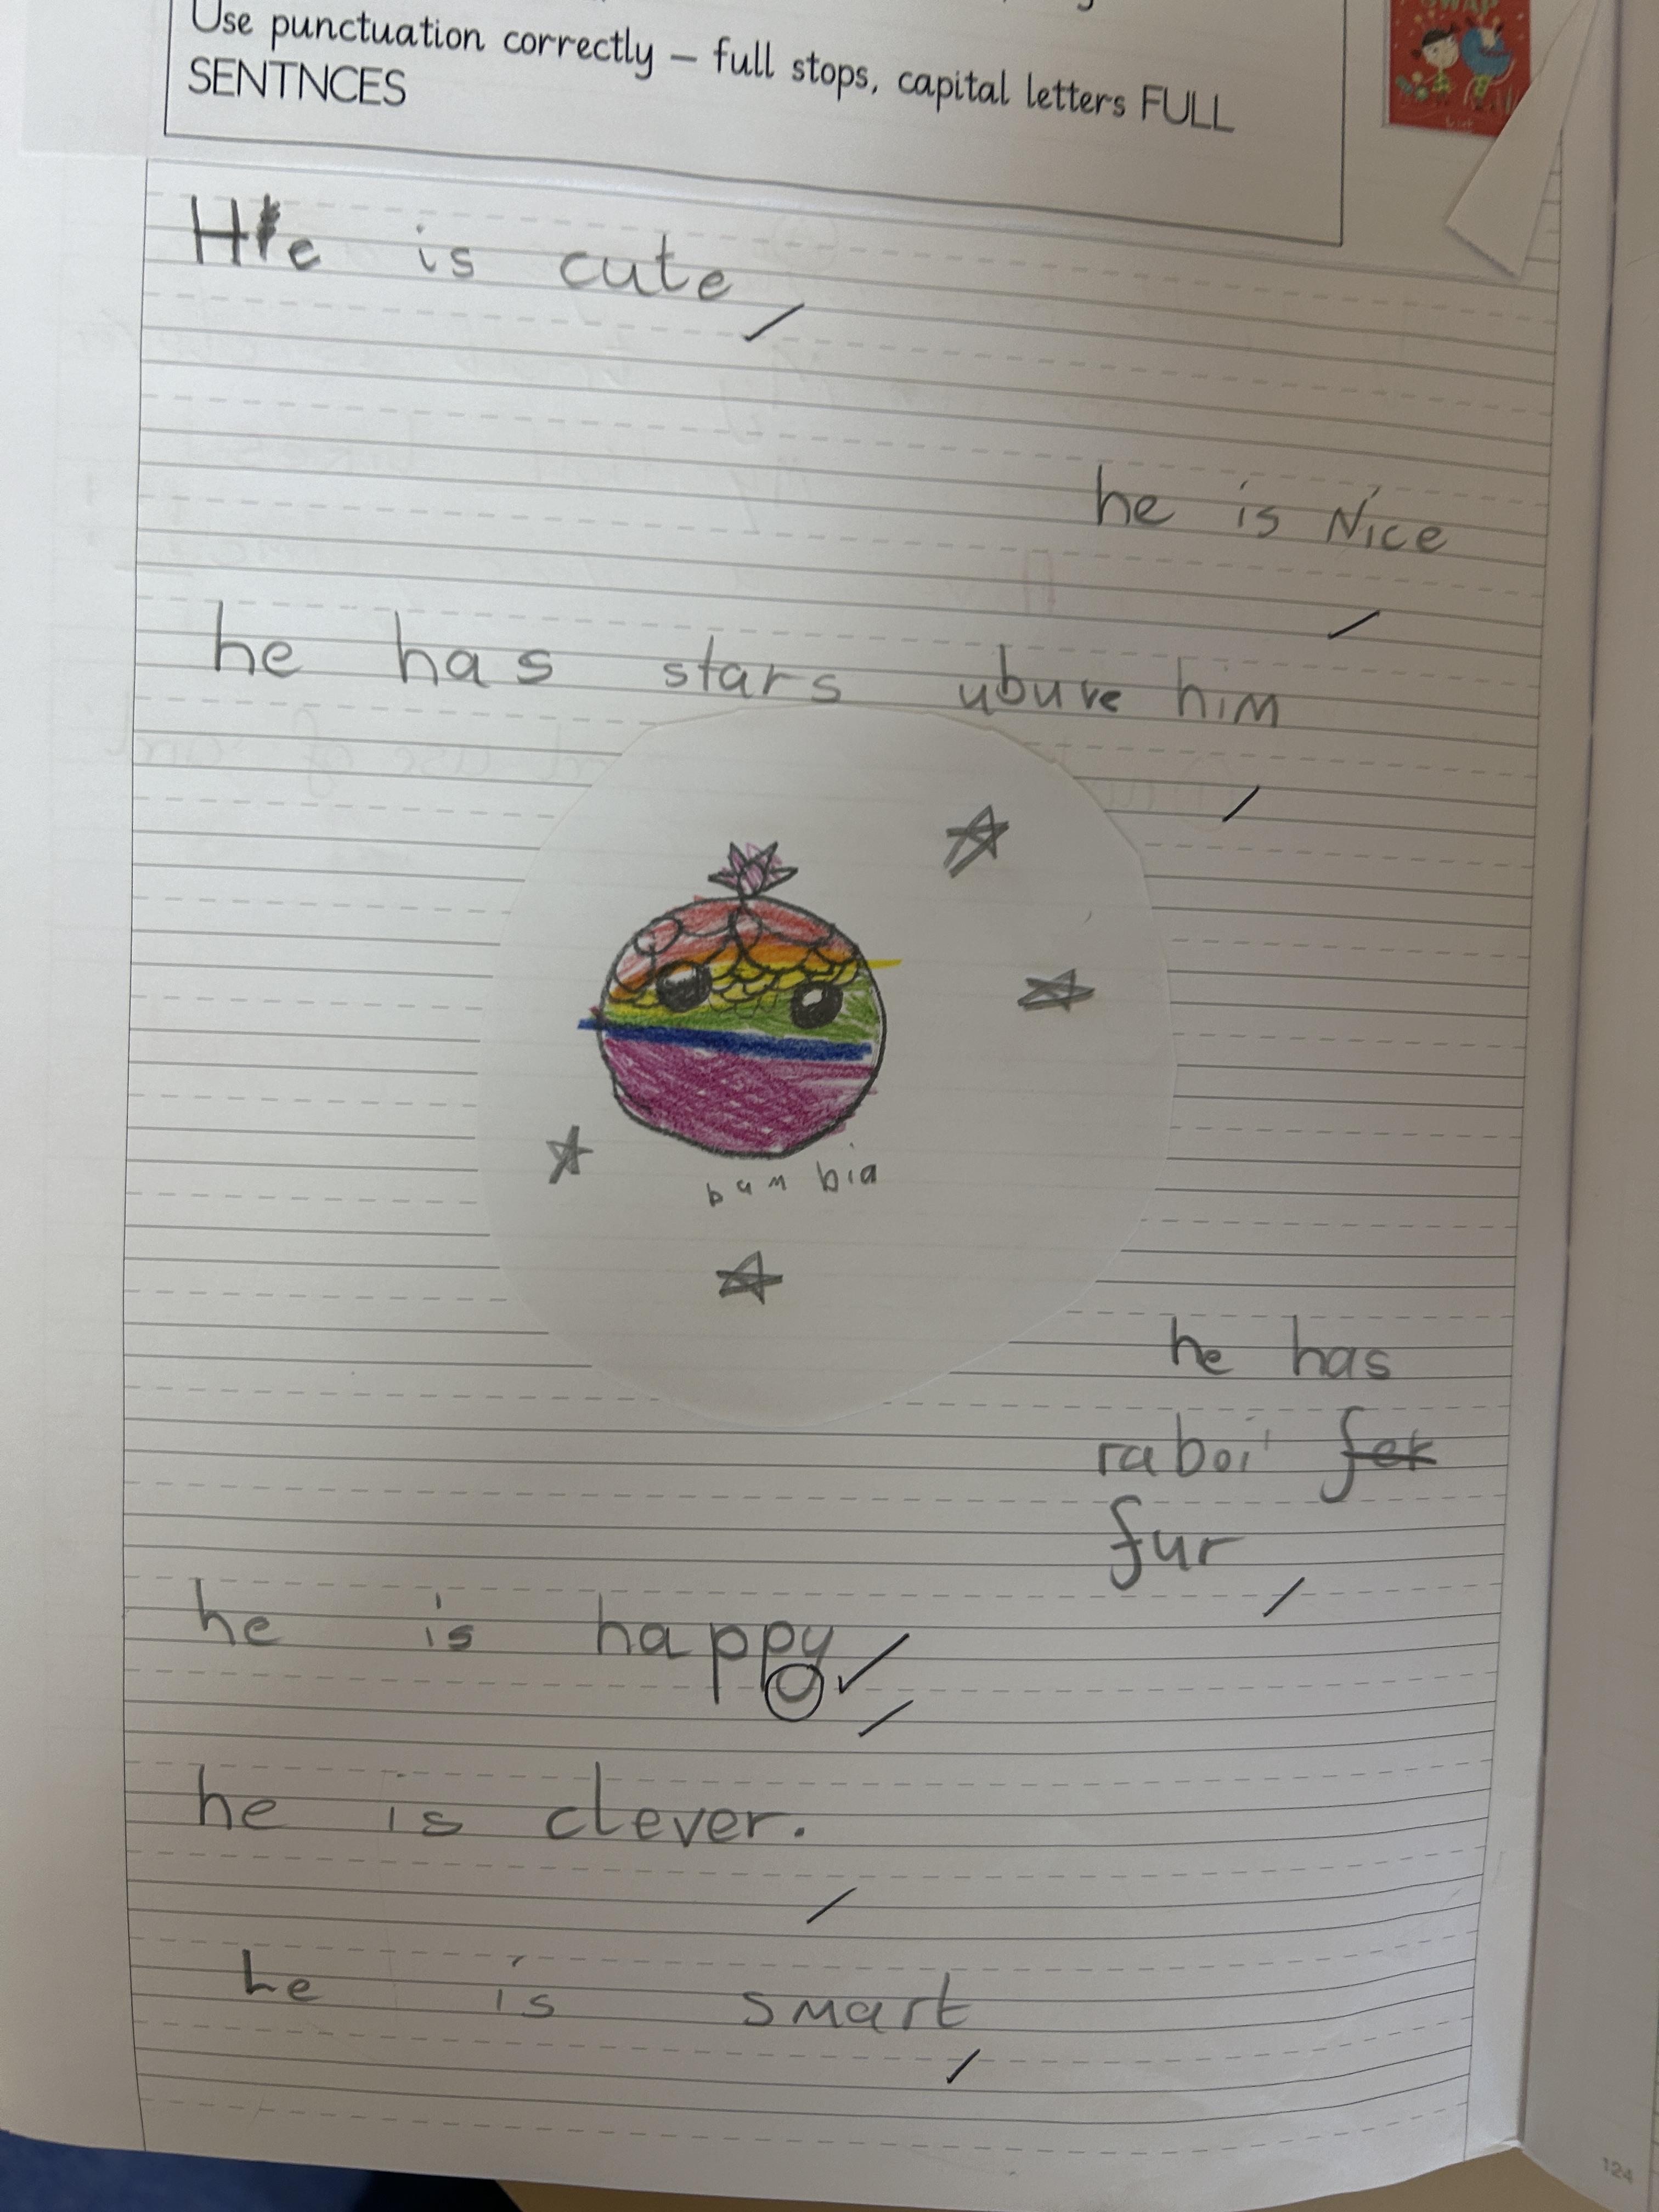 Use punctuation correctly – full stops, capital letters FULL
SENTNCES
He is cute
he is Nice
he has stars ubuve him
bam bia
he has
raboi fer
fur
he is happy
he is clever.
he is smart
124